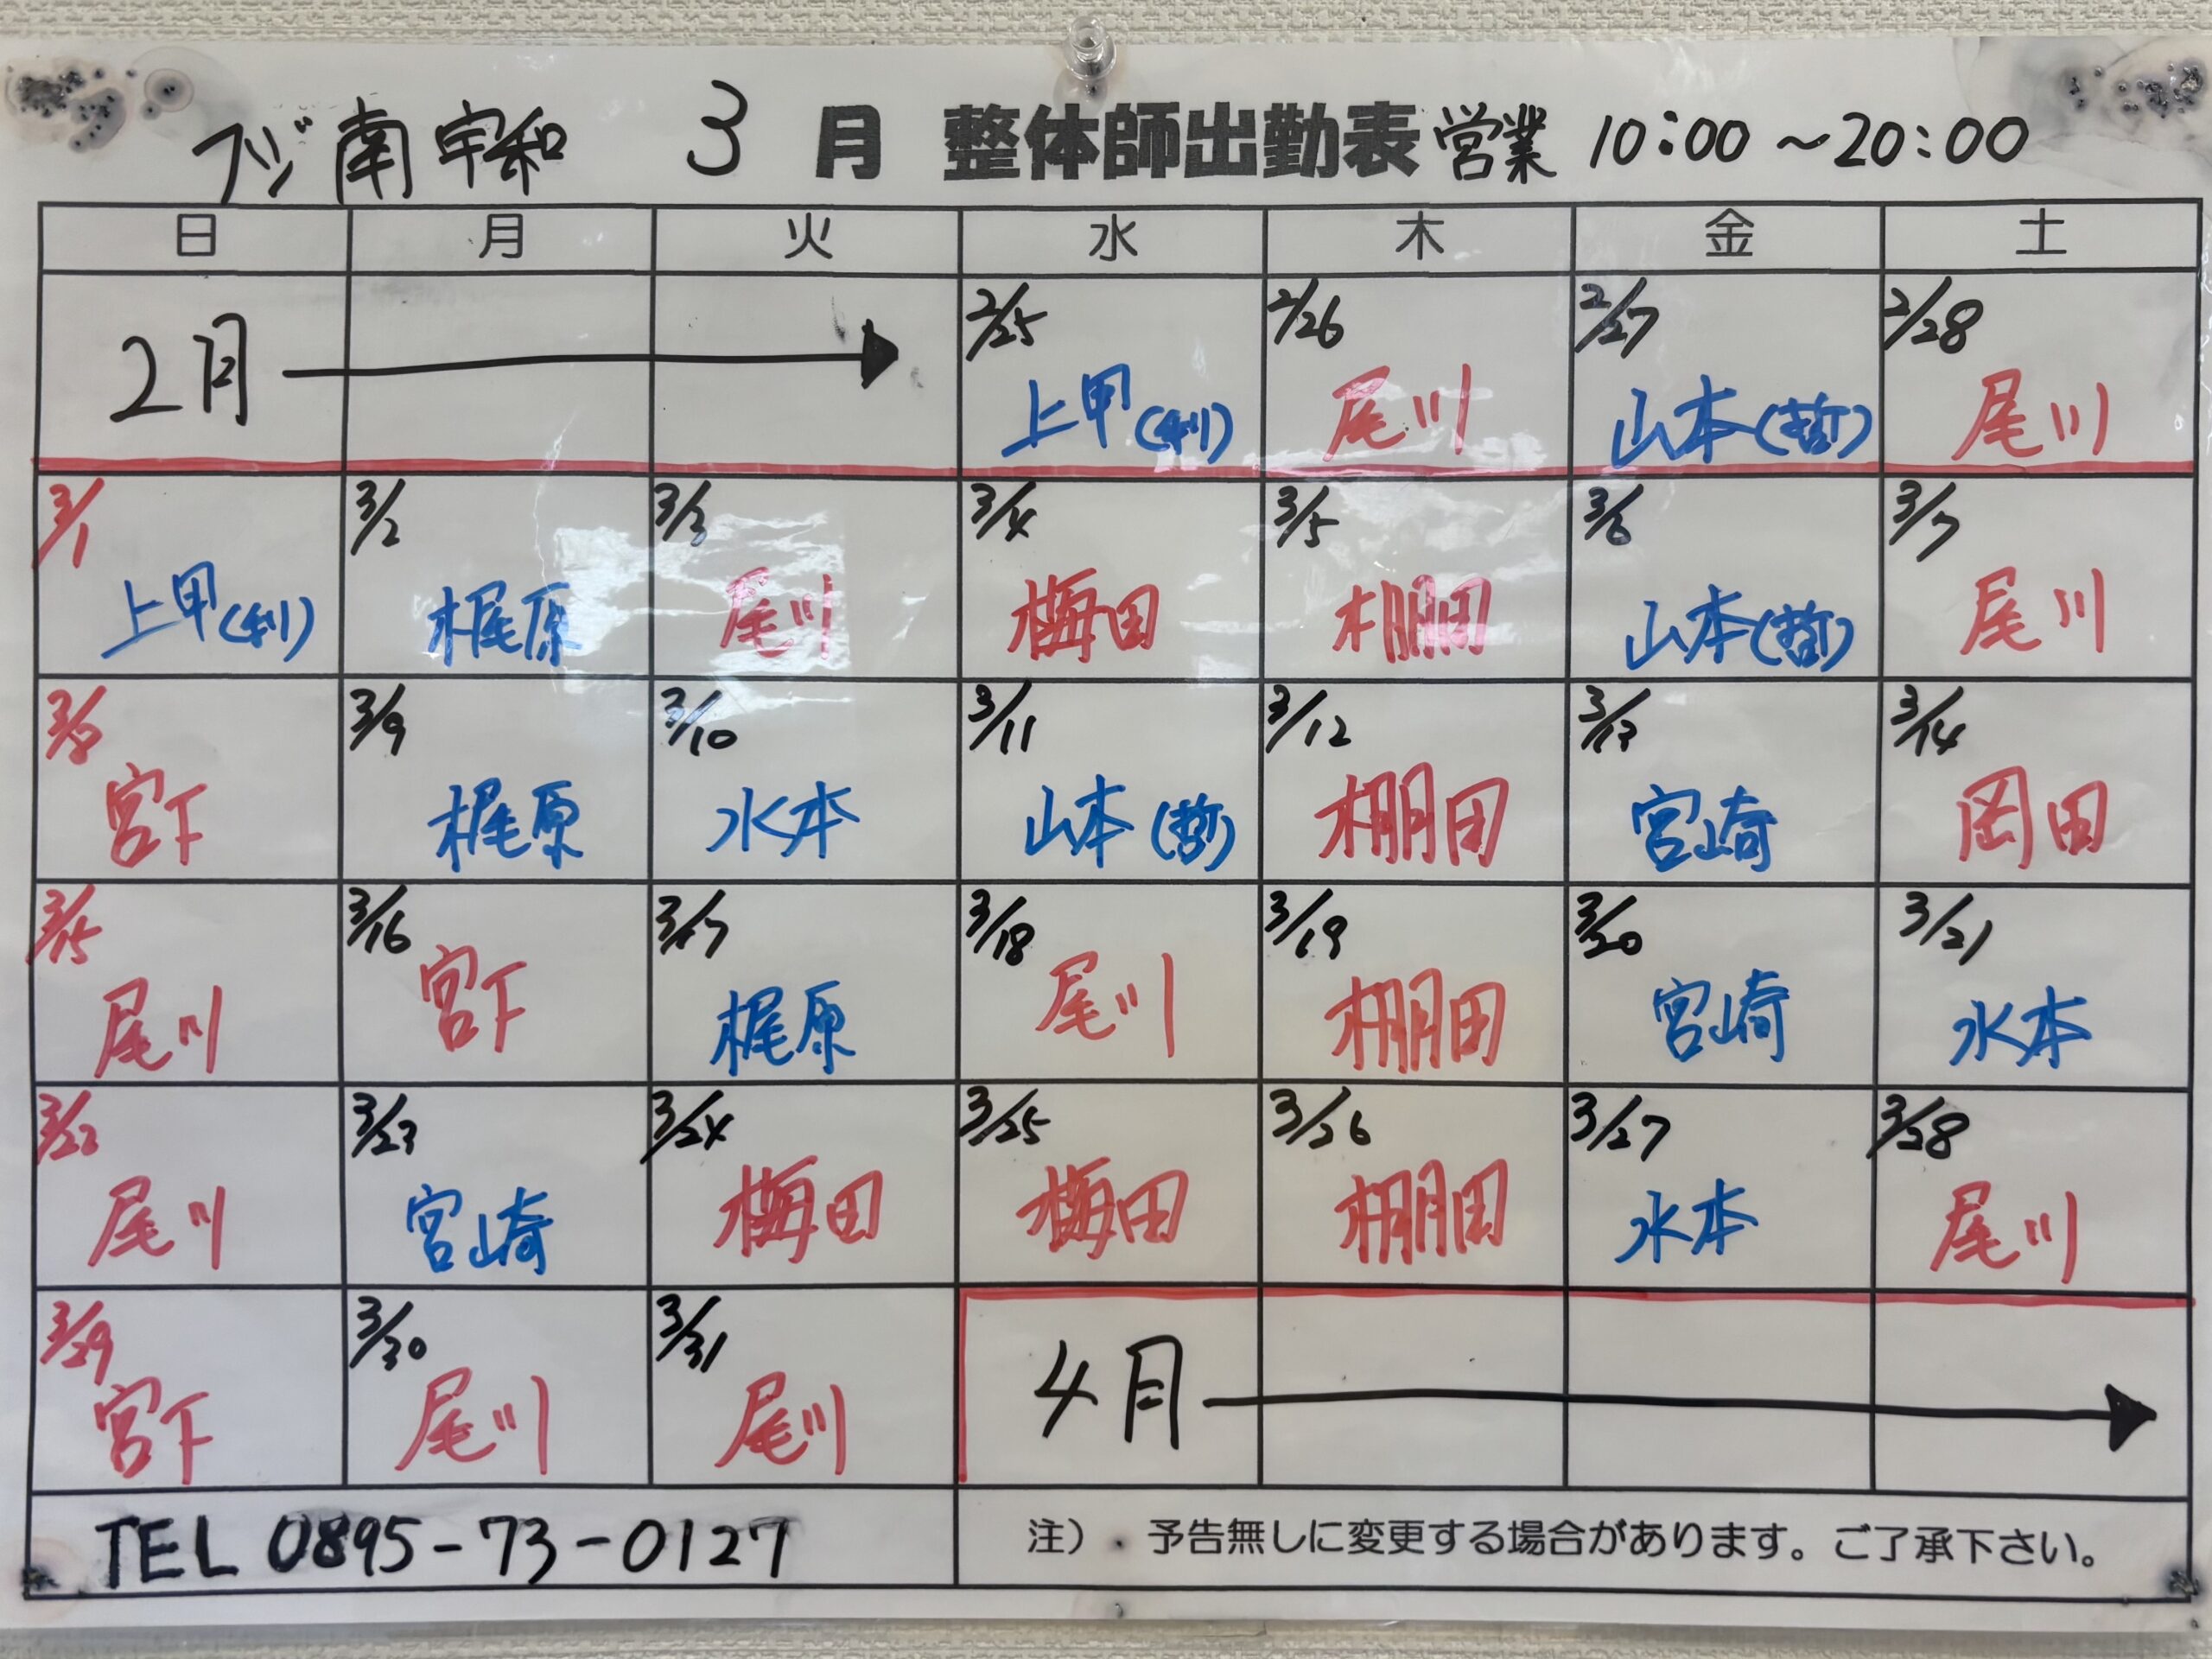 フジ南宇和 3月 整体師出勤表 営業 10:00～20:00
日 月 火 水 木 金 土
2月 2/25 2/26 2/27 2/28
上甲(利) 尾川 山本(哲) 尾川
3/1 3/2 3/3 3/4 3/5 3/6 3/7
上甲(利) 梶原 尾川 梅田 棚田 山本(哲) 尾川
3/8 3/9 3/10 3/11 3/12 3/13 3/14
宮下 梶原 水本 山本(哲) 棚田 宮崎 岡田
3/15 3/16 3/17 3/18 3/19 3/20 3/21
尾川 宮下 梶原 尾川 棚田 宮崎 水本
3/22 3/23 3/24 3/25 3/26 3/27 3/28
尾川 宮崎 梅田 梅田 棚田 水本 尾川
3/29 3/30 3/31 4月
宮下 尾川 尾川
TEL 0895-73-0127
注）．予告無しに変更する場合があります。ご了承下さい。